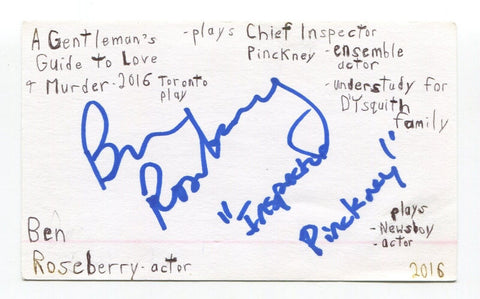 A Gentleman's
Guide to Love
+ Murder-2016 Toronto
play
-plays Chief Inspector
Pinckney -ensemble
actor
-understudy for
D'Ysquith
family
Ben
Roseberry
"Inspector
Pinckney"
Ben
Roseberry-actor
plays
-Newsboy
-actor
2016